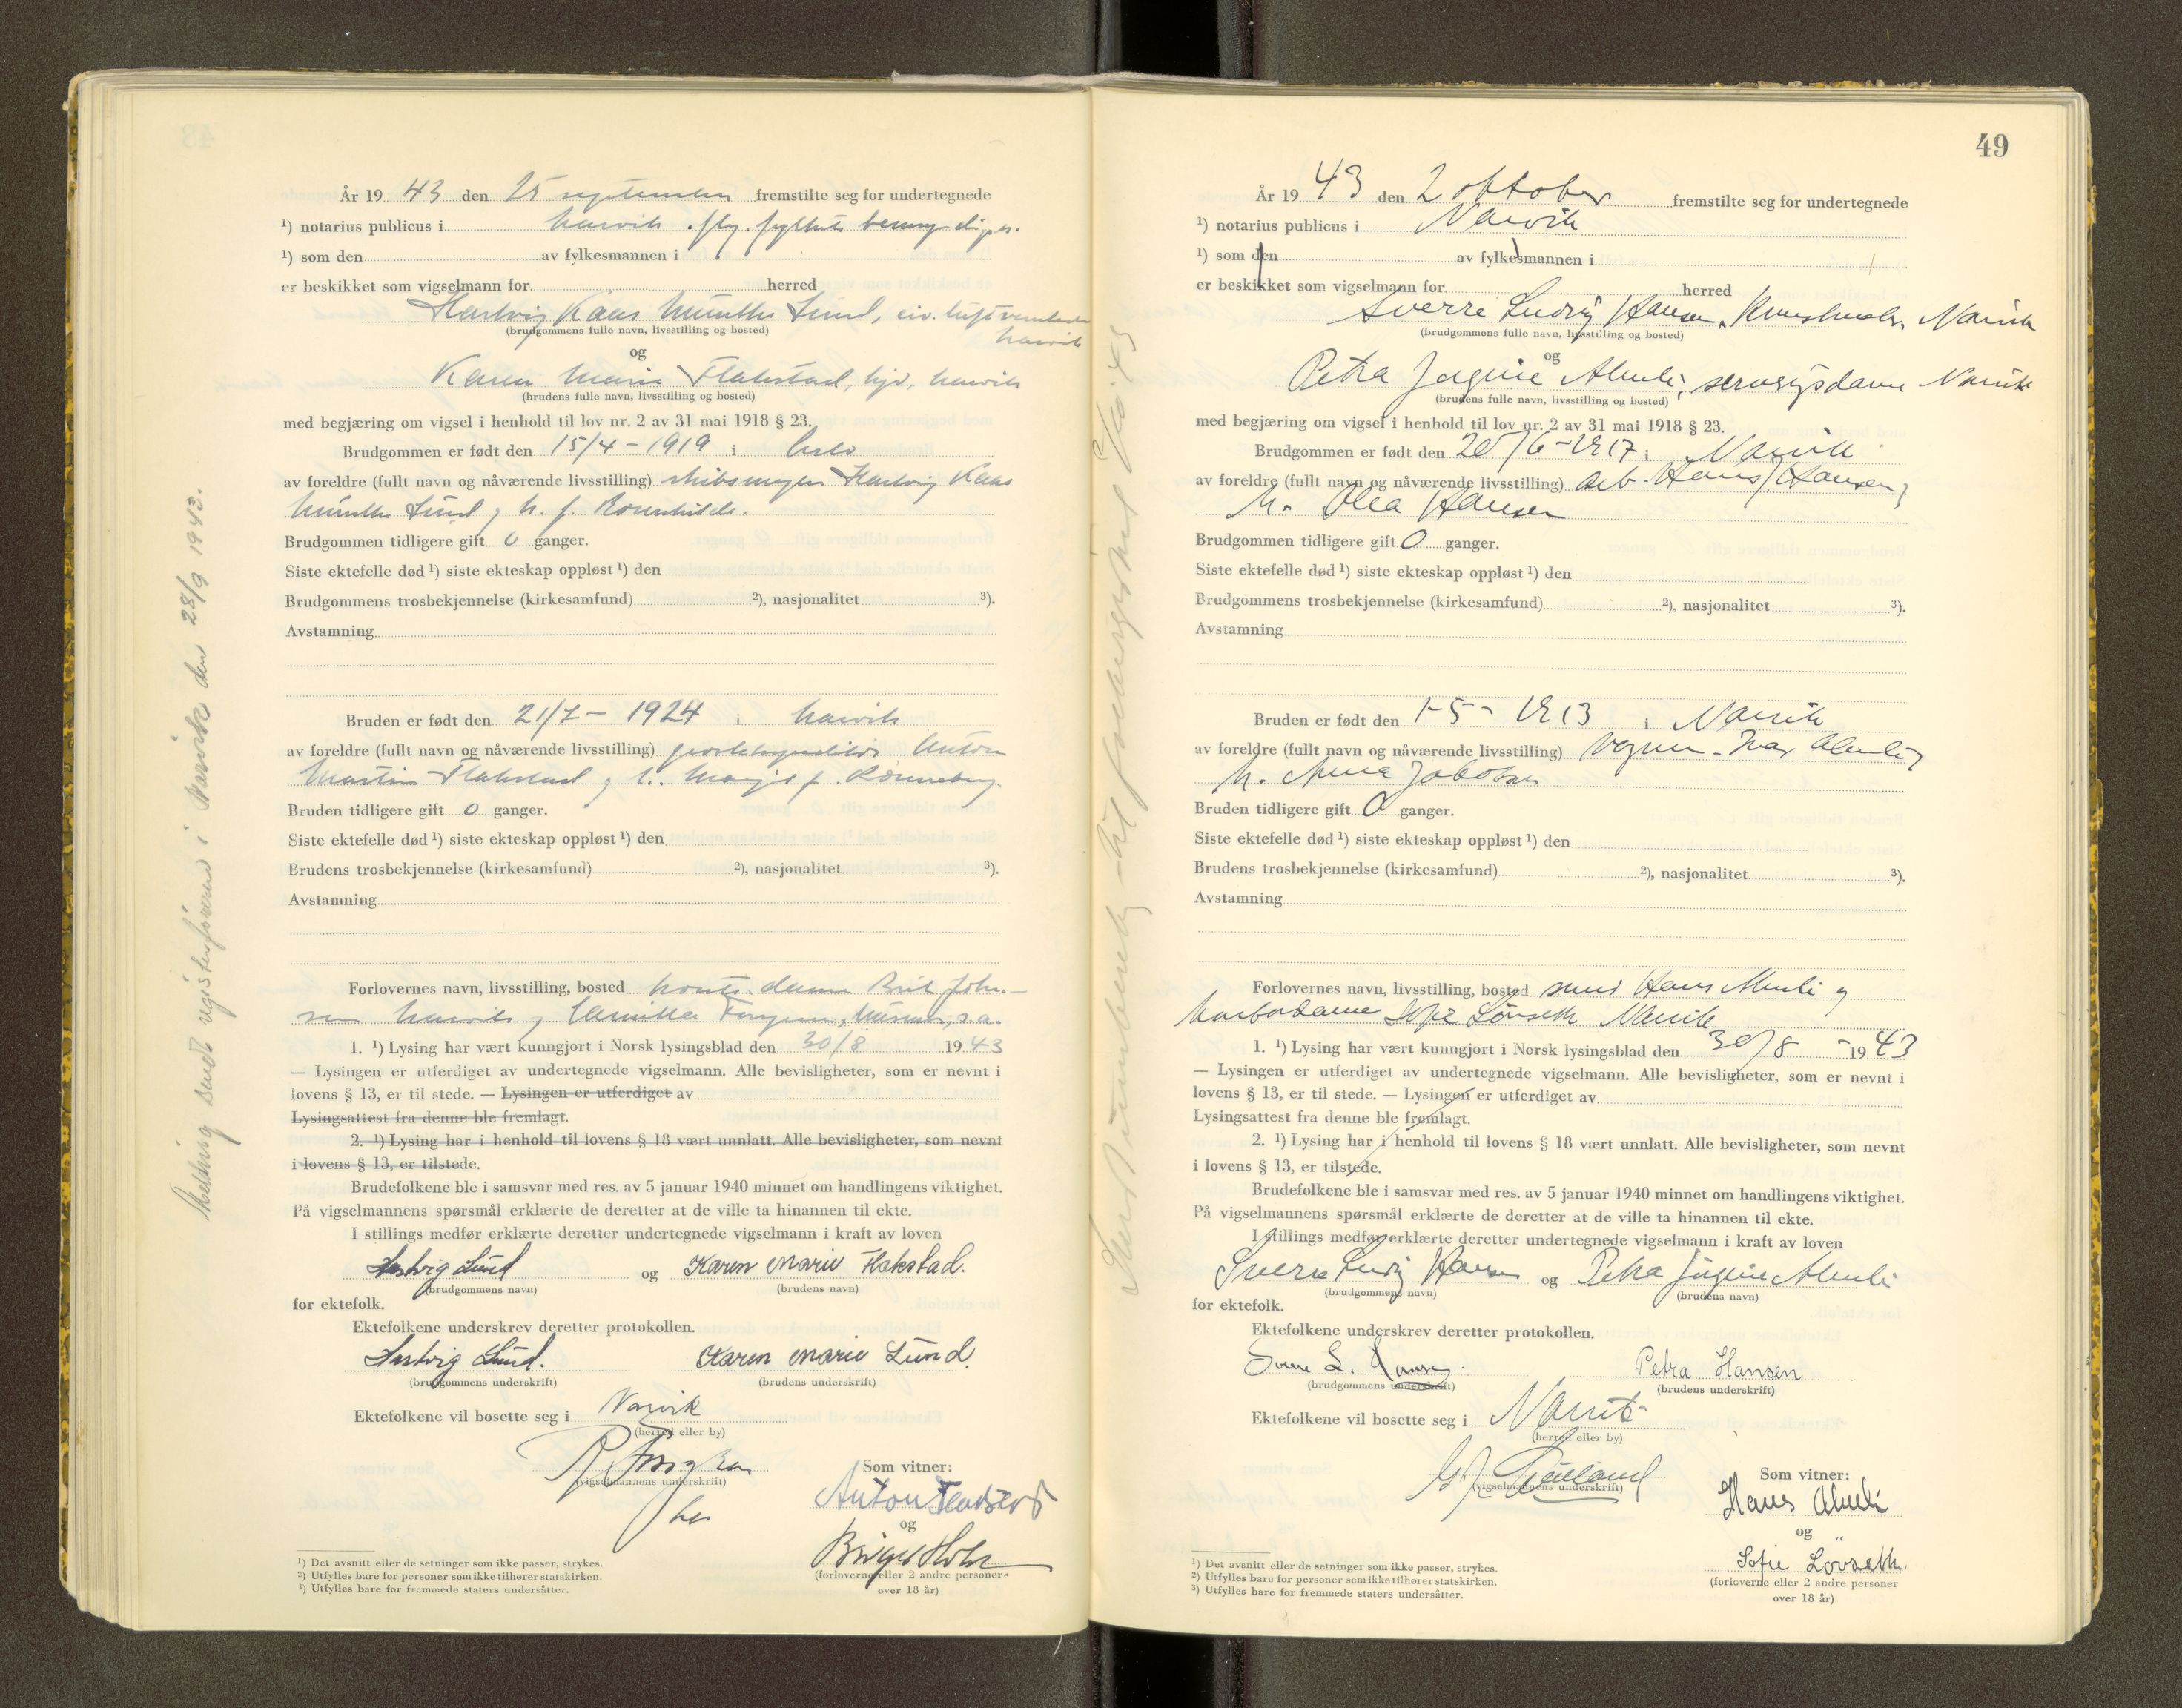 År 19 43 den 25 september fremstilte seg for undertegnede
¹) notarius publicus i Narvik
¹) som den av fylkesmannen i
er beskikket som vigselmann for herred
Hartvig Kaas Munthe Lund, siv.
Narvik
(brudgommens fulle navn, livsstilling og bosted)
og
Karen Marie Flakstad, Narvik
(brudens fulle navn, livsstilling og bosted)
med begjæring om vigsel i henhold til lov nr. 2 av 31 mai 1918 § 23.
Brudgommen er født den 15/4 - 1919 i Oslo
av foreldre (fullt navn og nåværende livsstilling) Hartvig Kaas
Munthe Lund og h. f.
Brudgommen tidligere gift 0 ganger.
Siste ektefelle død ¹) siste ekteskap oppløst ¹) den
Brudgommens trosbekjennelse (kirkesamfund) ²), nasjonalitet ³).
Avstamning
Bruden er født den 21/7 - 1924 i Narvik
av foreldre (fullt navn og nåværende livsstilling) Anton
Martin Flakstad og h.
Bruden tidligere gift 0 ganger.
Siste ektefelle død ¹) siste ekteskap oppløst ¹) den
Brudens trosbekjennelse (kirkesamfund) ²), nasjonalitet ³).
Avstamning
Forlovernes navn, livsstilling, bosted Brit John-
sen Narvik og Camilla
1. ¹) Lysing har vært kunngjort i Norsk lysingsblad den 30/8 19 43
— Lysingen er utferdiget av undertegnede vigselmann. Alle bevisligheter, som er nevnt i
lovens § 13, er til stede. — Lysingen er utferdiget av
Lysingsattest fra denne ble fremlagt.
2. ¹) Lysing har i henhold til lovens § 18 vært unnlatt. Alle bevisligheter, som nevnt
i lovens § 13, er tilstede.
Brudefolkene ble i samsvar med res. av 5 januar 1940 minnet om handlingens viktighet.
På vigselmannens spørsmål erklærte de deretter at de ville ta hinannen til ekte.
I stillings medfør erklærte deretter undertegnede vigselmann i kraft av loven
Hartvig Lund og Karen Marie Flakstad.
(brudgommens navn) (brudens navn)
for ektefolk.
Ektefolkene underskrev deretter protokollen.
Hartvig Lund. Karen Marie Lund.
(brudgommens underskrift) (brudens underskrift)
Ektefolkene vil bosette seg i Narvik
(herred eller by)
(vigselmannens underskrift)
Som vitner:
Anton Flakstad
og
Birger Holm
(forloverne eller 2 andre personer
over 18 år)
¹) Det avsnitt eller de setninger som ikke passer, strykes.
²) Utfylles bare for personer som ikke tilhører statskirken.
³) Utfylles bare for fremmede staters undersåtter.
Melding sendt registerføreren i Narvik den 28/9 1943.
49
År 19 43 den 2 oktober fremstilte seg for undertegnede
¹) notarius publicus i Narvik
¹) som den av fylkesmannen i
er beskikket som vigselmann for herred
Sverre Ludvig Hansen, Narvik
(brudgommens fulle navn, livsstilling og bosted)
og
Petra Jørgine Almli, serveringsdame Narvik
(brudens fulle navn, livsstilling og bosted)
med begjæring om vigsel i henhold til lov nr. 2 av 31 mai 1918 § 23.
Brudgommen er født den 20/6 - 1917 i Narvik
av foreldre (fullt navn og nåværende livsstilling) arb. Hans J. Hansen og
h. Olea Hansen
Brudgommen tidligere gift 0 ganger.
Siste ektefelle død ¹) siste ekteskap oppløst ¹) den
Brudgommens trosbekjennelse (kirkesamfund) ²), nasjonalitet ³).
Avstamning
Bruden er født den 1-5 - 1913 i Narvik
av foreldre (fullt navn og nåværende livsstilling) Ivar Almli og
h. Anna Jakobsen
Bruden tidligere gift 0 ganger.
Siste ektefelle død ¹) siste ekteskap oppløst ¹) den
Brudens trosbekjennelse (kirkesamfund) ²), nasjonalitet ³).
Avstamning
Forlovernes navn, livsstilling, bosted smed Hans Almli og
Sofie Løvseth Narvik
1. ¹) Lysing har vært kunngjort i Norsk lysingsblad den 30/8 - 19 43
— Lysingen er utferdiget av undertegnede vigselmann. Alle bevisligheter, som er nevnt i
lovens § 13, er til stede. — Lysingen er utferdiget av
Lysingsattest fra denne ble fremlagt.
2. ¹) Lysing har i henhold til lovens § 18 vært unnlatt. Alle bevisligheter, som nevnt
i lovens § 13, er tilstede.
Brudefolkene ble i samsvar med res. av 5 januar 1940 minnet om handlingens viktighet.
På vigselmannens spørsmål erklærte de deretter at de ville ta hinannen til ekte.
I stillings medfør erklærte deretter undertegnede vigselmann i kraft av loven
Sverre Ludvig Hansen og Petra Jørgine Almli
(brudgommens navn) (brudens navn)
for ektefolk.
Ektefolkene underskrev deretter protokollen.
Sverre L. Hansen. Petra Hansen
(brudgommens underskrift) (brudens underskrift)
Ektefolkene vil bosette seg i Narvik
(herred eller by)
(vigselmannens underskrift)
Som vitner:
Hans Almli
og
Sofie Lövseth.
(forloverne eller 2 andre personer
over 18 år)
¹) Det avsnitt eller de setninger som ikke passer, strykes.
²) Utfylles bare for personer som ikke tilhører statskirken.
³) Utfylles bare for fremmede staters undersåtter.